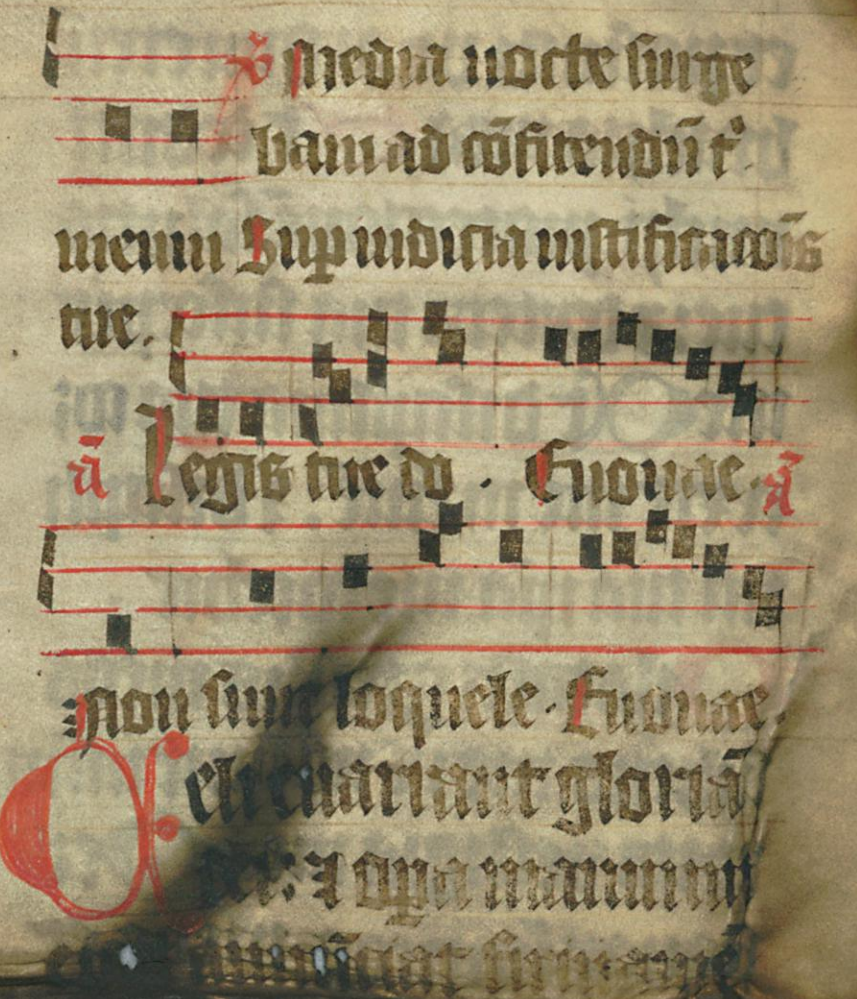 ℣ Media nocte surge
bam ad cōfitendū t᷑
meum Sup iudicia iustificacōis
tue.
ā Legis tue do. Euouae. ā
Non sunt loquele. Euouae.
Celi enarrant gloriā
dei: ⁊ opa manuum
annūciat firmamē